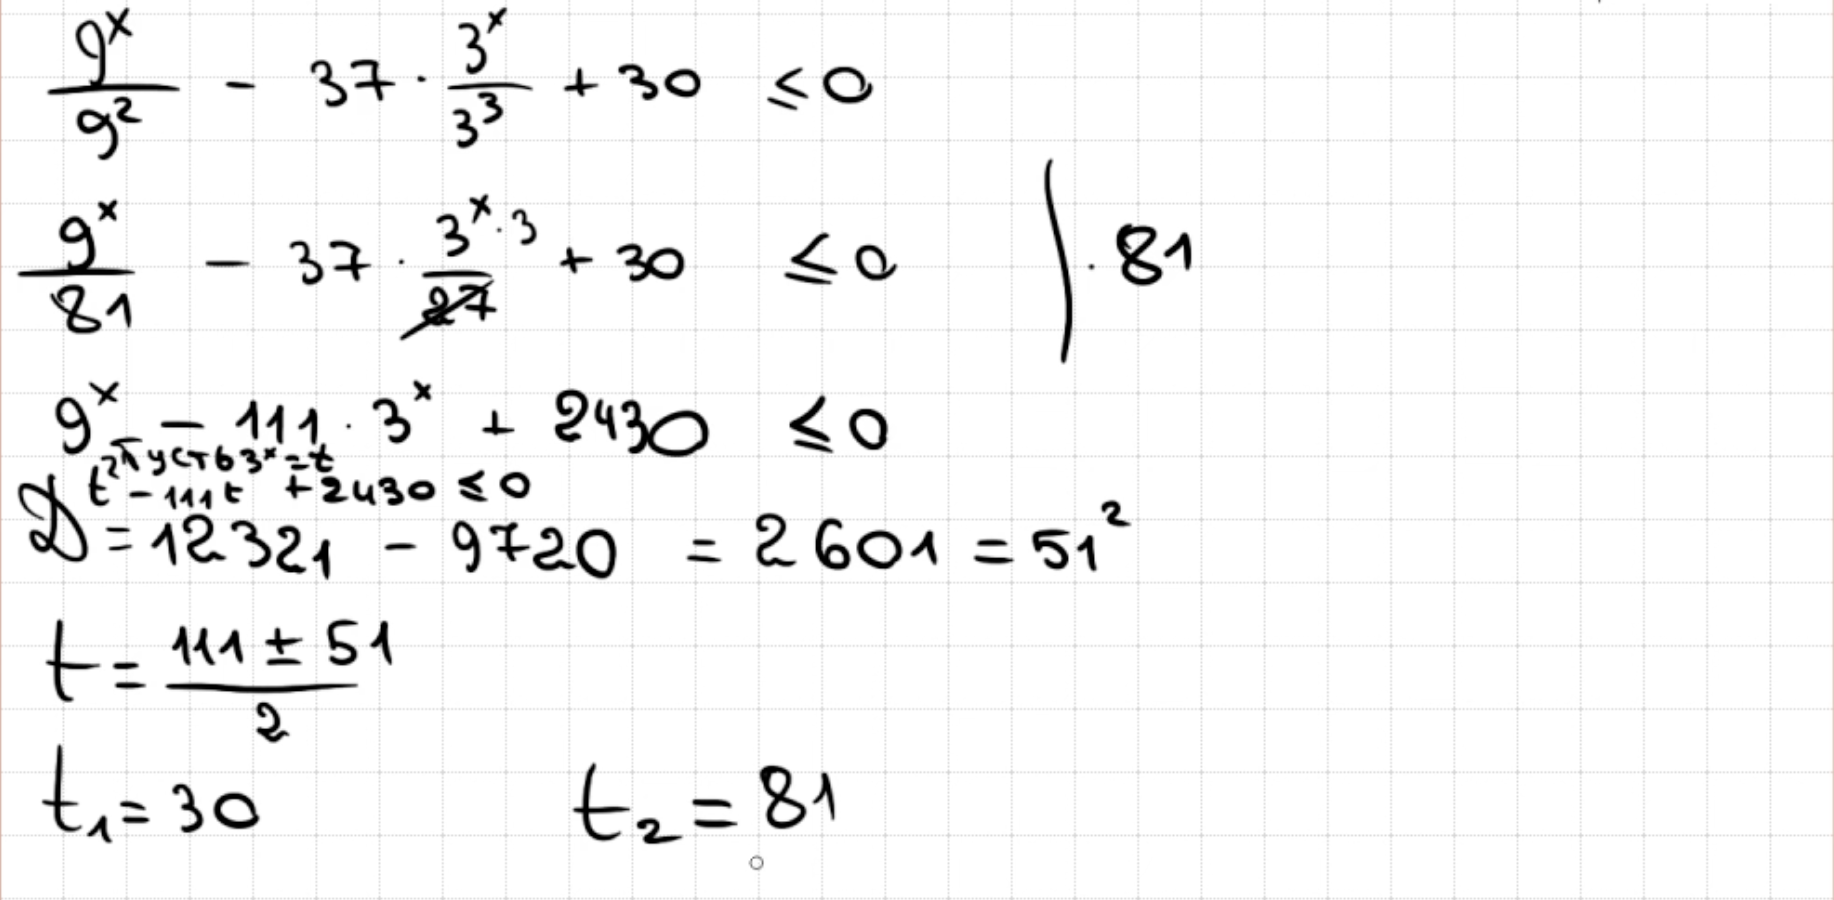 9^x/9^2 - 37 · 3^x/3^3 + 30 ≤ 0
9^x/81 - 37 · 3^x·3/27 + 30 ≤ 0 | · 81
9^x - 111 · 3^x + 2430 ≤ 0
пусть 3^x = t
t^2 - 111t + 2430 ≤ 0
D = 12321 - 9720 = 2601 = 51^2
t = (111 ± 51)/2
t₁ = 30 t₂ = 81